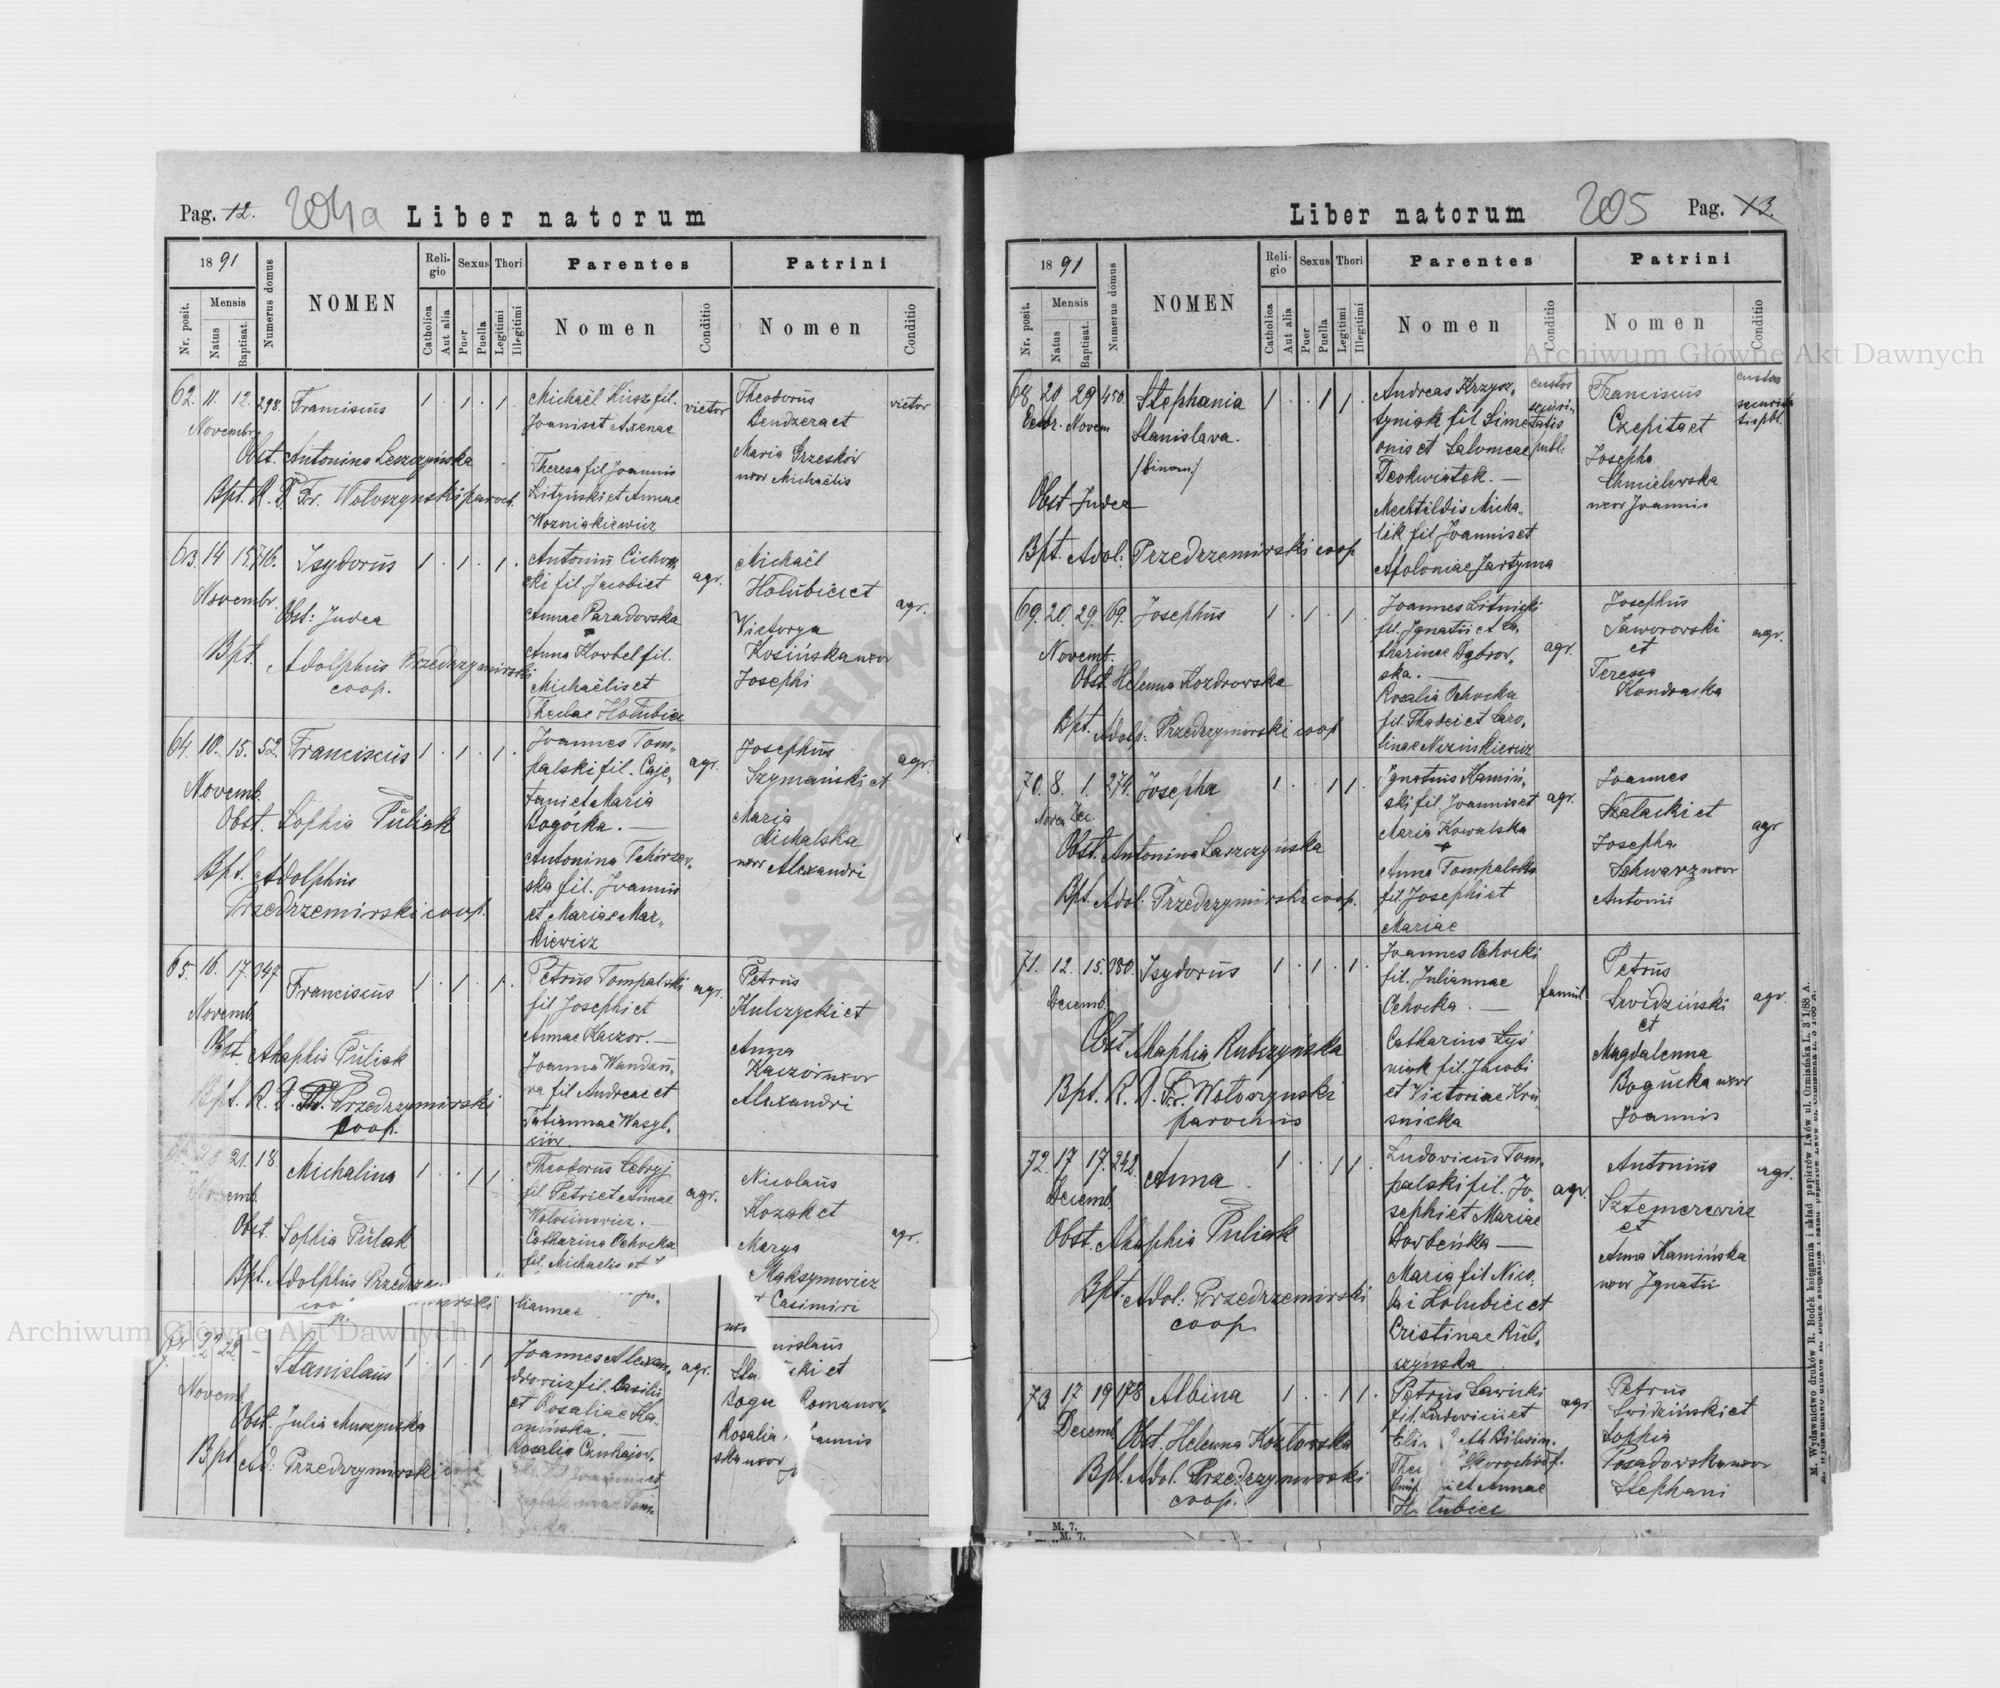 Pag. 12.
204a
Liber natorum
1891
Nr. posit.
Mensis
Natus
Baptisat.
Numerus domus
NOMEN
Religio
Catholica
Aut alia
Sexus
Puer
Puella
Thori
Legitimi
Illegitimi
Parentes
Nomen
Conditio
Patrini
Nomen
Conditio
62. 11. 12. 298. Franciscus 1 . 1 . 1 .
Novembr.
Obst. Antonina Leszczyńska
Bpt. R. D. Fr. Wołoszynski paroch.
Michaël Kusz fil.
Joannis et Axenae
Theresa fil Joannis
Lityński et Annae
Wozniakiewicz
victor
Theodorus
Dendzera et
Maria Grzeskór
uxor Michaëlis
victor
63. 14 15. 716. Isydorus 1 . 1 . 1 .
Novembr.
Obst: Judea
Bpt. Adolphus Przedrzymirski
coop.
Antonius Cichow
ski fil. Jacobi et
Annae Paradowska
Anna Korbel fil.
Michaëlis et
Theclae Hołubiec
agr.
Michaël
Hołubiec et
Victorya
Kosińska uxor
Josephi
agr.
64. 10. 15. 52. Franciscus 1 . 1 . 1 .
Novemb.
Obst. Sophia Puliak
Bpt. Adolphus
Przedrzemirski coop.
Joannes Tom„
palski fil. Caje„
tani et Maria
Bogócka. —
Antonina Tchórzew„
ska fil. Joannis
et Mariae Mar„
kiewicz
agr.
Josephus
Szymański et
Maria
Michalska
uxor Alexandri
agr.
65. 16. 17. 347 Franciscus 1 . 1 . 1 .
Novemb.
Obst. Ahaphia Puliak
Bpt. R. D. Przedrzymirski
coop.
Petrus Tompalski
fil Josephi et
Annae Kaczor. —
Joanna Wandzu„
ra fil Andreae et
Tatiannae Wasyl„
ciów
agr.
Petrus
Kulczycki et
Anna
Kaczór uxor
Alexandri
21. 18 Michalina 1 . . 1 1 .
Obst. Sophia Puliak
Bpt. Adolphus
Theodorus Cebryj
fil Petri et Annae
Wołosinowicz. —
Catharina Ochocka
fil. Michaelis et
liannae
agr.
Nicolaus
Kozak et
Marya
Maksymowicz
Casimiri
agr.
22 22 — Stanislaus 1 . 1 . . 1
Novemb.
Obst. Julia Muszynska
Bpt. Ad: Przedrzymirski
Joannes Alexan„
drowicz fil. Basilii
et Rosaliae Ka„
mińska. —
Rosalia
agr.
Romanow„
Rosalia
ska uxor
Liber natorum
205
Pag. 13.
1891
Nr. posit.
Mensis
Natus
Baptisat.
Numerus domus
NOMEN
Religio
Catholica
Aut alia
Sexus
Puer
Puella
Thori
Legitimi
Illegitimi
Parentes
Nomen
Conditio
Patrini
Nomen
Conditio
68. 20 29 450. Stephania 1 . . 1 1 .
Octobr. Novem Stanislava.
/binom/
Obst Judea
Bpt. Adol: Przedrzemirski coop
Andreas Krzysz„
tyniak fil Sime
onis et Salomeae
Mechtildis Micha„
lik fil Joannis et
Apoloniae Jartyma
custos
securi„
tatis
publ.
Franciscus
Czepita et
Josepha
Chmielewska
uxor Joannis
custos
69. 20. 29. 69. Josephus 1 . 1 . 1 .
Novemb.
Obst. Helenna Kozdrowska
Bpt. Adolp. Przedrzymirski coop
Joannes Litnicki
fil. Ignatii et Ca„
tharinae Dąbrow„
ska. —
Rosalia Ochocka
fil. Thadei et Caro„
linae
agr.
Josephus
Jaworowski
et
Teressa
Kondracka
agr.
70. 8. 1. 274. Josepha 1 . . 1 1 .
Novem Dec.
Obst. Antonina Laszczyńska
Bpt. Adol. Przedrzymirski coop.
Ignatius Kamiń„
ski fil. Joannis et
Maria Kowalska
Anna Tompalska
fil. Josephi et
Mariae
agr.
Joannes
Szałacki et
Josepha
Schwarz uxor
Antonii
agr
71. 12. 15. 380. Isydorus 1 . 1 . 1 .
Decemb.
Obst Ahaphia Rubczyńska
Bpt. R. D. Fr. Wołoszynski
parochus
Joannes Ochocki
fil. Juliannae
Ochocka. —
Catharina Łyś
niak fil. Jacobi
et Victoriae Kru
snicka
famul.
Petrus
Swidziński
et
Magdalenna
Bogucka uxor
Joannis
agr.
72. 17 17. 242. Anna 1 . . 1 1 .
Decemb.
Obst. Ahaphia Puliak
Bpt. Adol: Przedrzemirski
coop
Ludovicus Tom„
palski fil. Jo„
sephi et Mariae
Dorbeńka —
Maria fil Nico„
lai Hołubiec et
Cristinae Rub„
czyńska
agr.
Antonius
Sztemerowicz
et
Anna Kamińska
uxor Ignatii
agr.
73. 17 19 178 Albina 1 . . 1 1 .
Decemb.
Obst. Helenna Kozłowska
Bpt. Adol. Przedrzymirski
coop.
Petrus Sawicki
fil. Ludovici et
et Annae
agr.
Petrus
Swidziński et
Sophia
Posadowska uxor
Stephani
M. 7.
M. 7.
M. Wydawnictwo druków R. Bodek księgarnia i skład papierów Lwów ul. Ormiańska L. 3 188 A.
Archiwum Główne Akt Dawnych
Archiwum Główne Akt Dawnych